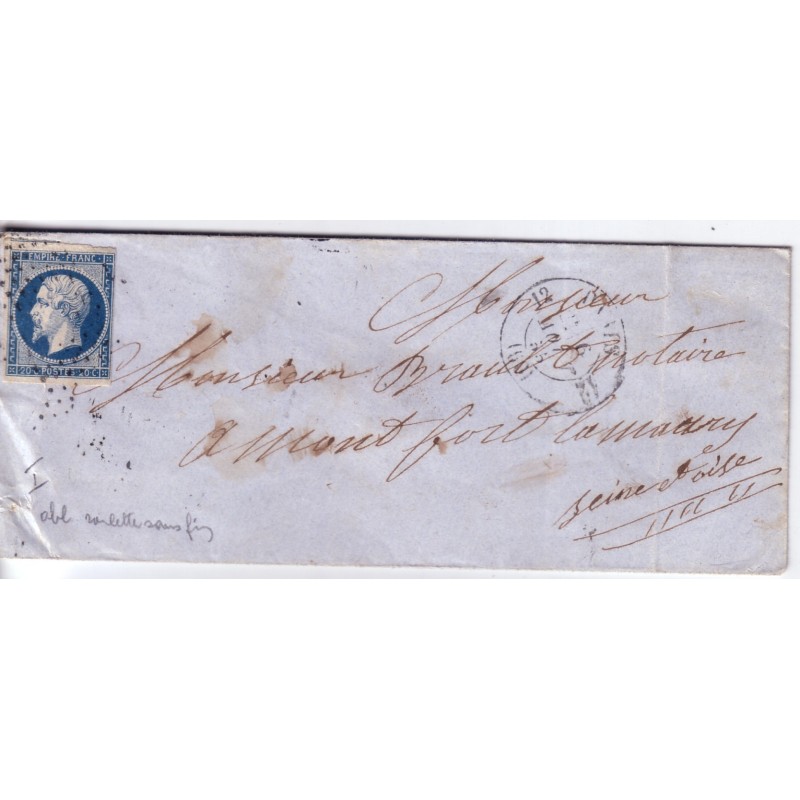 EMPIRE FRANC
20 POSTES 20 C
Monsieur
Monsieur Brault notaire
a montfort lamaury
seine et oise
obl roulette sans fin
12